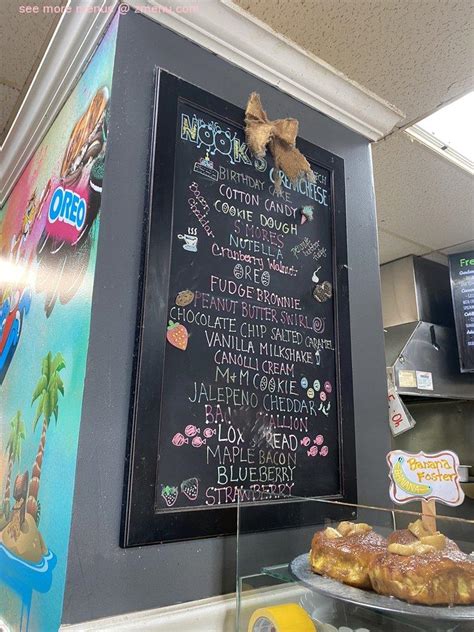 see more menus @ zmenu.com
NOOK's
CREMCHEESE
BIRTHDAY CAKE
COTTON CANDY
COOKIE DOUGH
S'MORES
NUTELLA
Cranberry Walnut
OREO
FUDGE BROWNIE
PEANUT BUTTER SWIRL
CHOCOLATE CHIP SALTED CARAMEL
VANILLA MILKSHAKE
CANOLLI CREAM
M+M COOKIE
JALEPENO CHEDDAR
LOX SPREAD
MAPLE BACON
BLUEBERRY
STRAWBERRY
OREO
Fre
Banana
Foster
BANANA